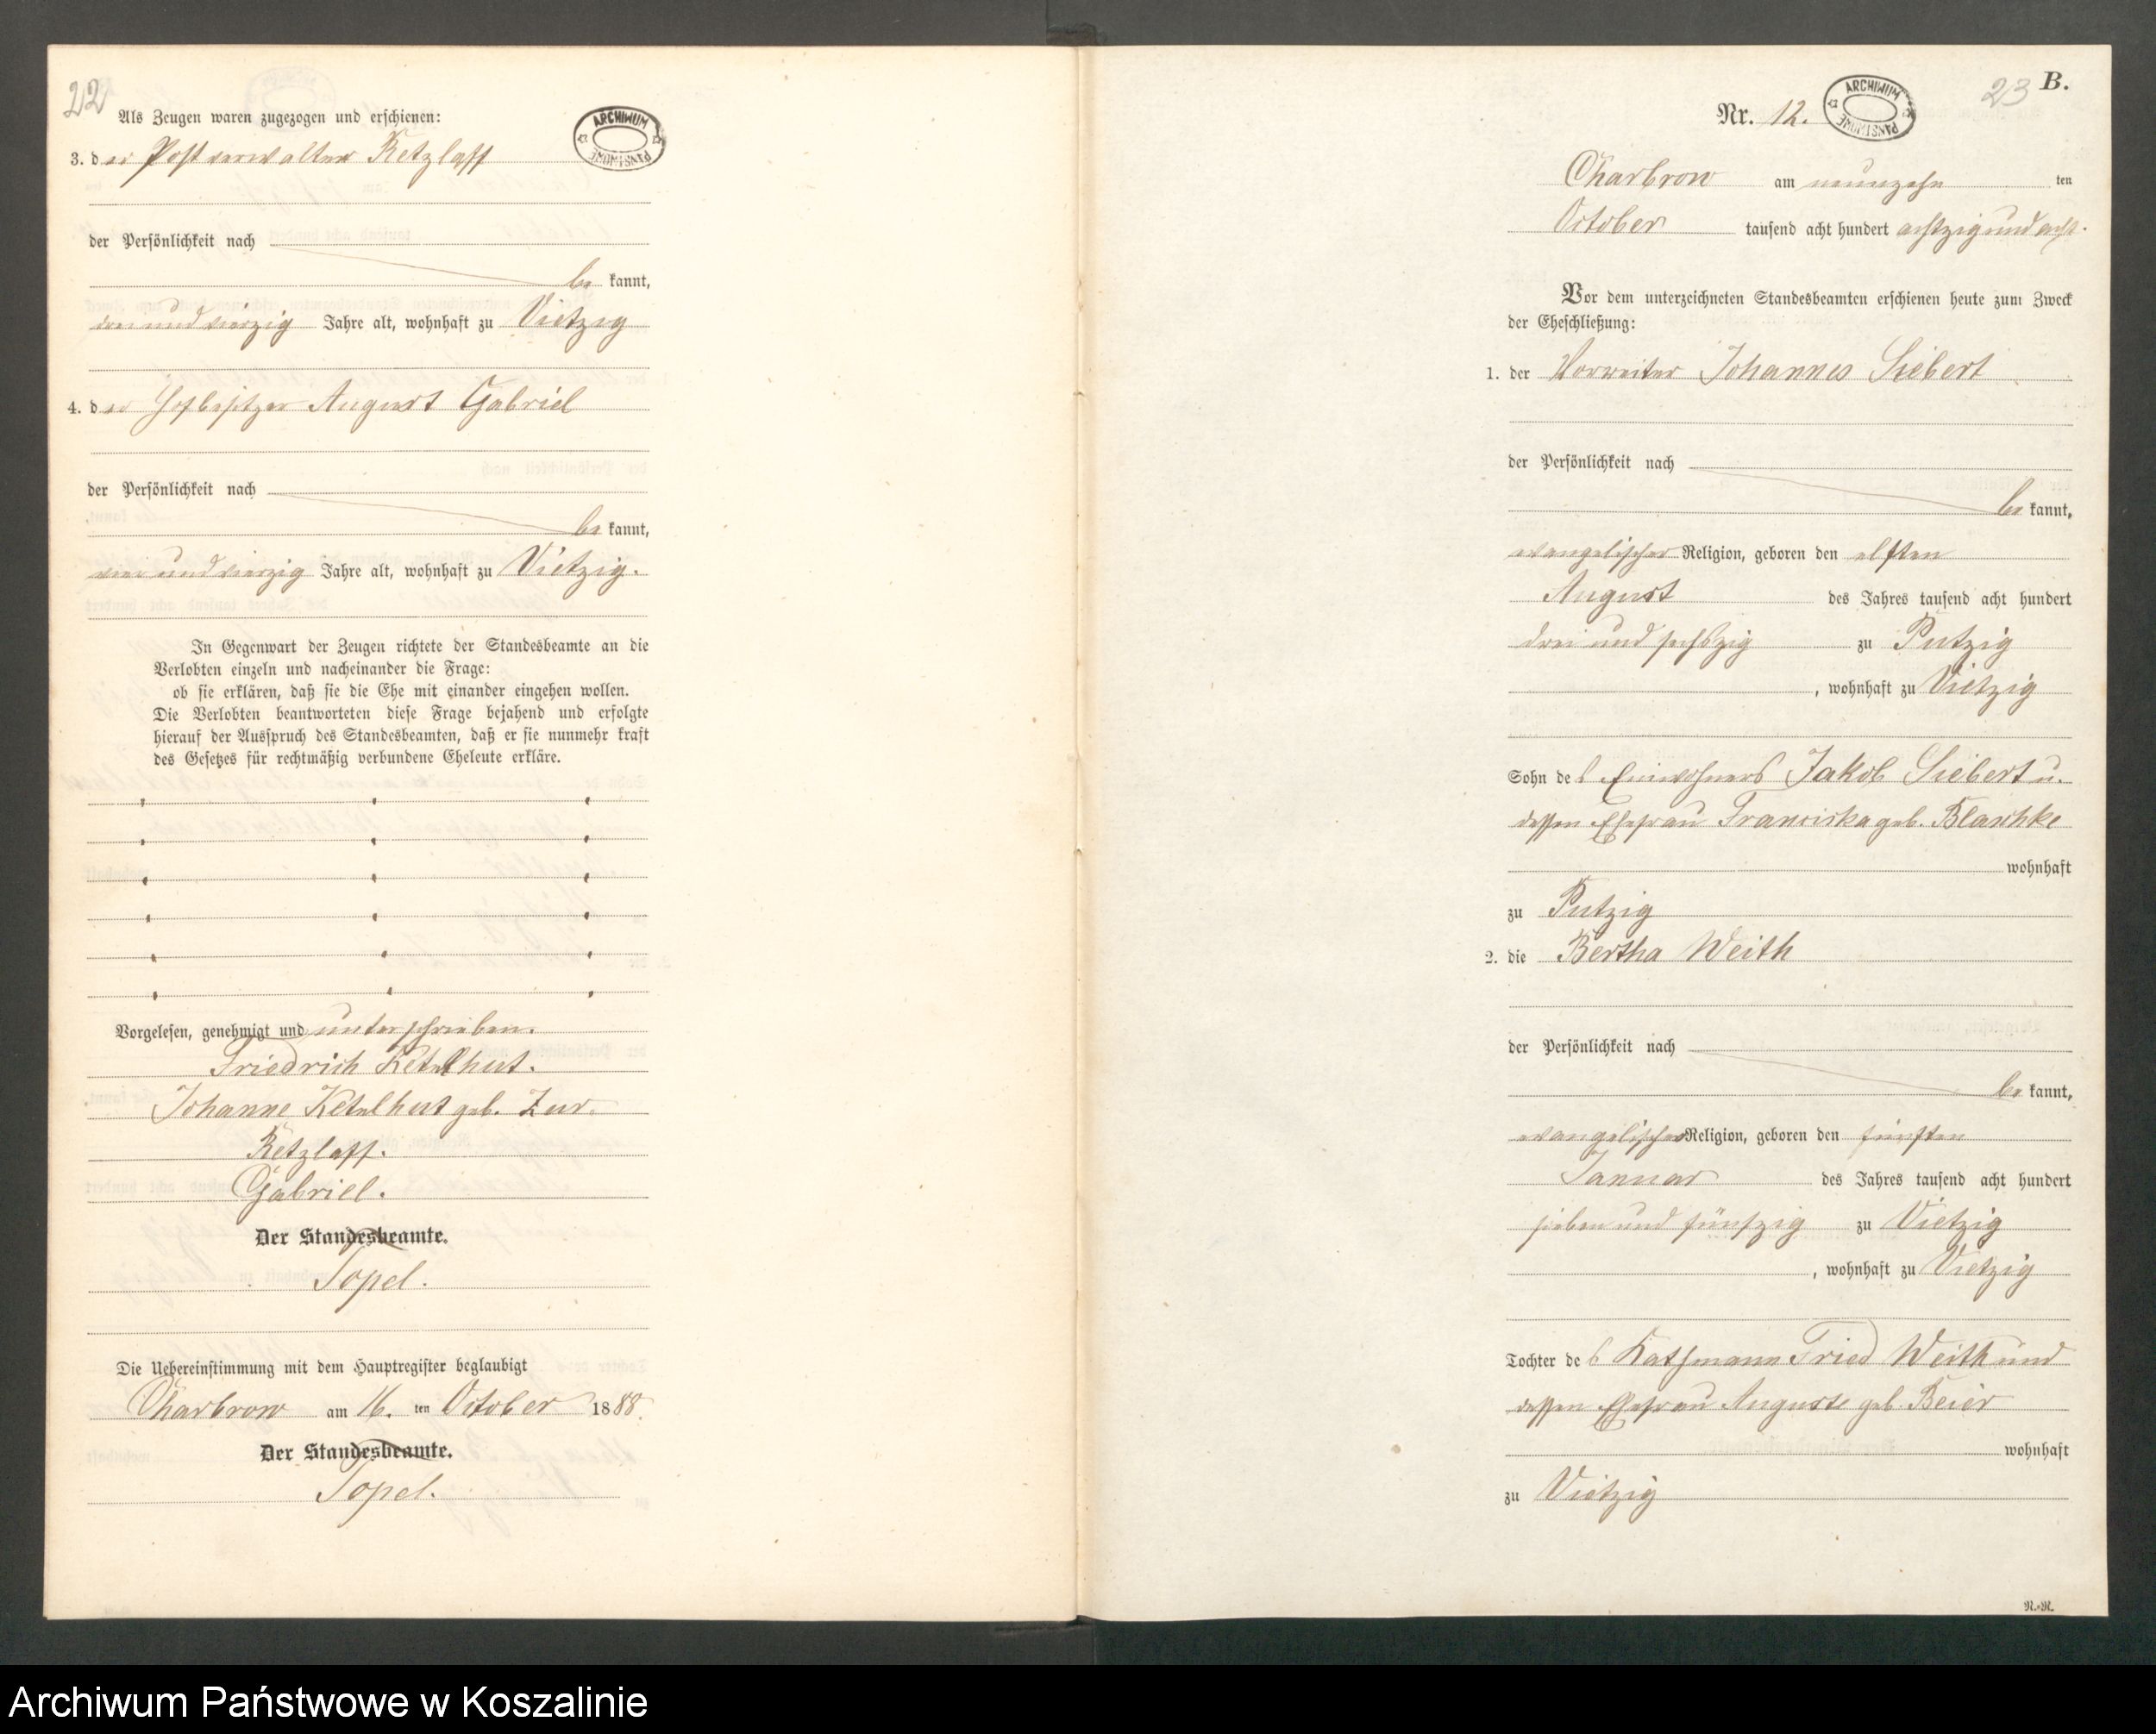 22
Als Zeugen waren zugezogen und erschienen:
ARCHIWUM PAŃSTWOWE
3. der Postverwalter Retzlaff
der Persönlichkeit nach
bekannt,
drei und vierzig Jahre alt, wohnhaft zu Vietzig
4. der Hofbesitzer August Gabriel
der Persönlichkeit nach
bekannt,
vier und vierzig Jahre alt, wohnhaft zu Vietzig.
In Gegenwart der Zeugen richtete der Standesbeamte an die
Verlobten einzeln und nacheinander die Frage:
ob sie erklären, daß sie die Ehe mit einander eingehen wollen.
Die Verlobten beantworteten diese Frage bejahend und erfolgte
hierauf der Ausspruch des Standesbeamten, daß er sie nunmehr kraft
des Gesetzes für rechtmäßig verbundene Eheleute erkläre.
Vorgelesen, genehmigt und unterschrieben.
Friedrich Ketelhut.
Johanne Ketelhut geb. Zur.
Retzlaff.
Gabriel.
Der Standesbeamte.
Topel.
Die Uebereinstimmung mit dem Hauptregister beglaubigt
Charbrow am 16. ten October 1888.
Der Standesbeamte.
Topel.
23 B.
Nr. 12.
ARCHIWUM PAŃSTWOWE
Charbrow am neunzehn ten
October tausend acht hundert achtzig und acht.
Vor dem unterzeichneten Standesbeamten erschienen heute zum Zweck
der Eheschließung:
1. der Vorreiter Johannes Siebert
der Persönlichkeit nach
bekannt,
evangelischer Religion, geboren den elften
August des Jahres tausend acht hundert
drei und sechszig zu Putzig
, wohnhaft zu Vietzig
Sohn des Einwohners Jakob Siebert u.
dessen Ehefrau Franciska geb. Blaschke
wohnhaft
zu Putzig
2. die Bertha Weith
der Persönlichkeit nach
bekannt,
evangelischer Religion, geboren den fünften
Januar des Jahres tausend acht hundert
sieben und fünfzig zu Vietzig
, wohnhaft zu Vietzig
Tochter des Kathmann Fried Weith und
dessen Ehefrau Auguste geb. Beier
wohnhaft
zu Vietzig
R.-R.
Archiwum Państwowe w Koszalinie